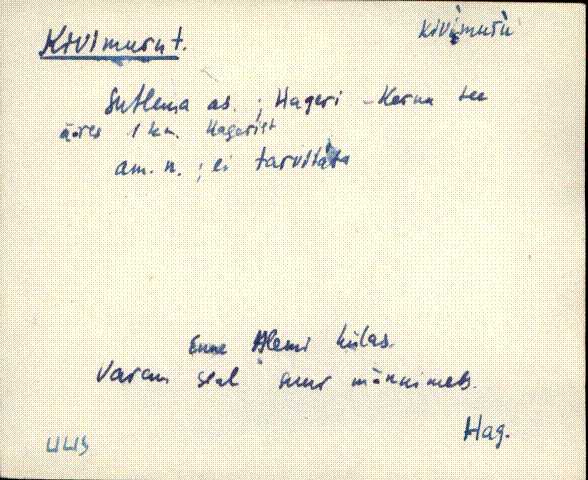 Kivimurut.
Kivimurũ
Sutlema as.; Hageri - Kernu tee
ääres 1 km. Hagerist
am. n.; ei tarvitata
Enne Alemi külas.
Varem seal suur männimets.
Hag.